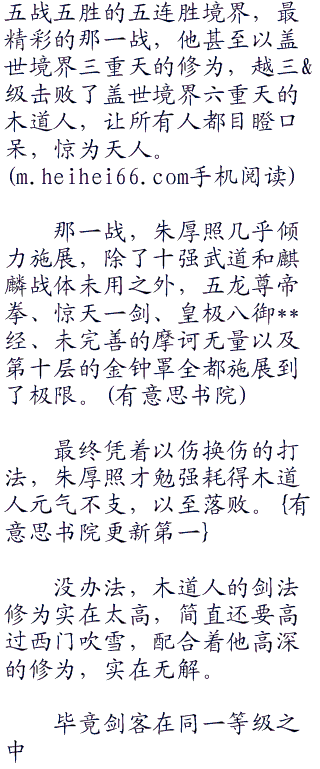 五战五胜的五连胜境界，最
精彩的那一战，他甚至以盖
世境界三重天的修为，越三&
级击败了盖世境界六重天的
木道人，让所有人都目瞪口
呆，惊为天人。
(m.heihei66.com手机阅读)
那一战，朱厚照几乎倾
力施展，除了十强武道和麒
麟战体未用之外，五龙尊帝
拳、惊天一剑、皇极八御**
经、未完善的摩诃无量以及
第十层的金钟罩全都施展到
了极限。(有意思书院)
最终凭着以伤换伤的打
法，朱厚照才勉强耗得木道
人元气不支，以至落败。{有
意思书院更新第一}
没办法，木道人的剑法
修为实在太高，简直还要高
过西门吹雪，配合着他高深
的修为，实在无解。
毕竟剑客在同一等级之
中